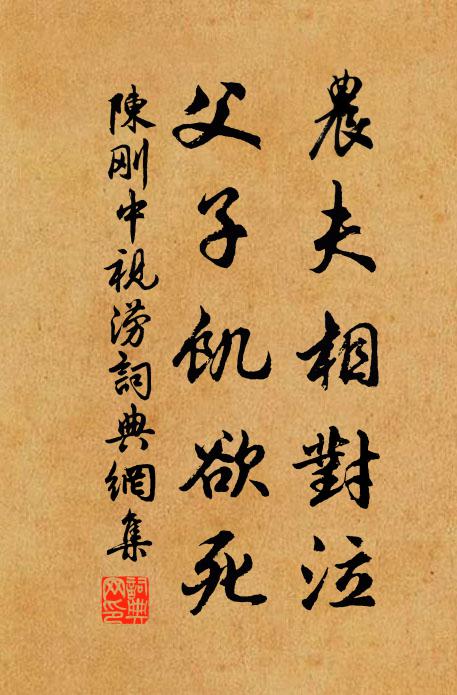 農夫相對泣
父子飢欲死
陳剛中視澇詞典網集
詞典网印